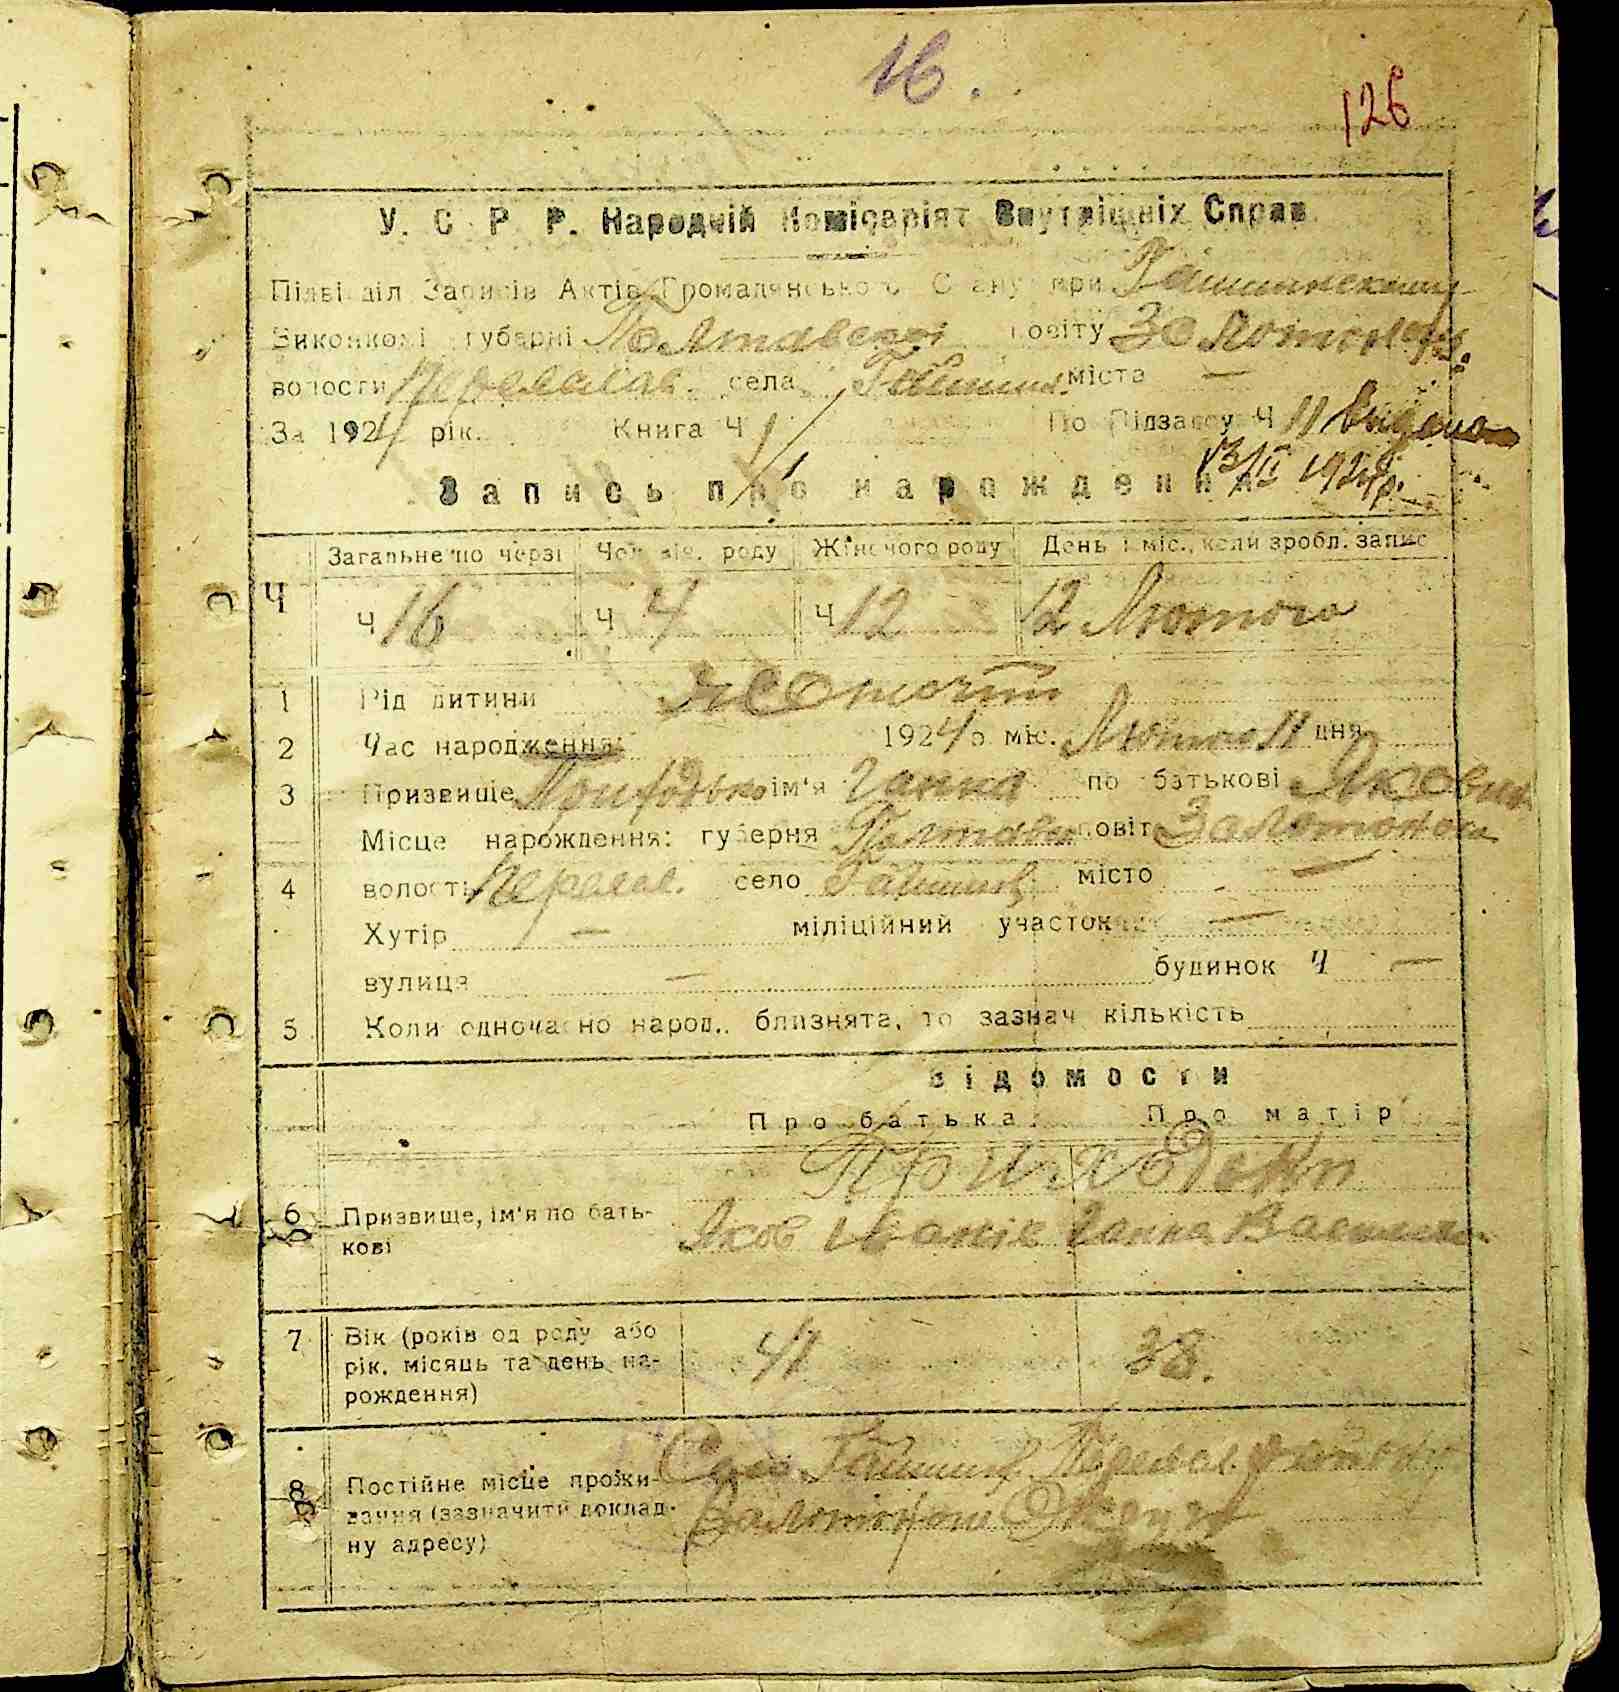 16.
126
У. С. Р. Р. Народній Комісаріят Внутрішніх Справ
Підвідділ Записів Актів Громадянського Стану при Гайшинскому
Виконкомі губерні Полтавскої повіту Золотонос.
волости Переяслав. села Гайшин міста —
За 1924 рік. Книга Ч 1 По Підзагсу Ч 11 видано
13/II 1924 р.
Запись про народження
Загальне по черзі Чоловіч. роду Жіночого роду День і міс., коли зробл. запис
Ч Ч 16 Ч 4 Ч 12 12 Лютого
1 Рід дитини жіночий
2 Час народження: 1924 р. міс. Лютого 11 дня
3 Призвище Приходько ім'я Ганна по батькові Яковна
Місце народження: губерня Полтавська повіт Золотонош
4 волость Переяслав. село Гайшин місто —
Хутір — міліційний участок —
вулиця — будинок Ч —
5 Коли одночасно народ. близнята, то зазнач кількість
Відомости
Про батька Про матір
Приходьки
6 Призвище, ім'я по бать-
кові
Яков Іванів Ганна Василів
7 Вік (років од роду або
рік, місяць та день на-
рождення)
41 38.
8 Постійне місце прожи-
вання (зазначити доклад-
ну адресу)
Село Гайшин Переяслав. району
Золотонош Округи